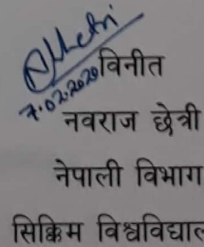 Chhetri
7.02.2020
विनीत
नवराज छेत्री
नेपाली विभाग
सिक्किम विश्वविद्याल